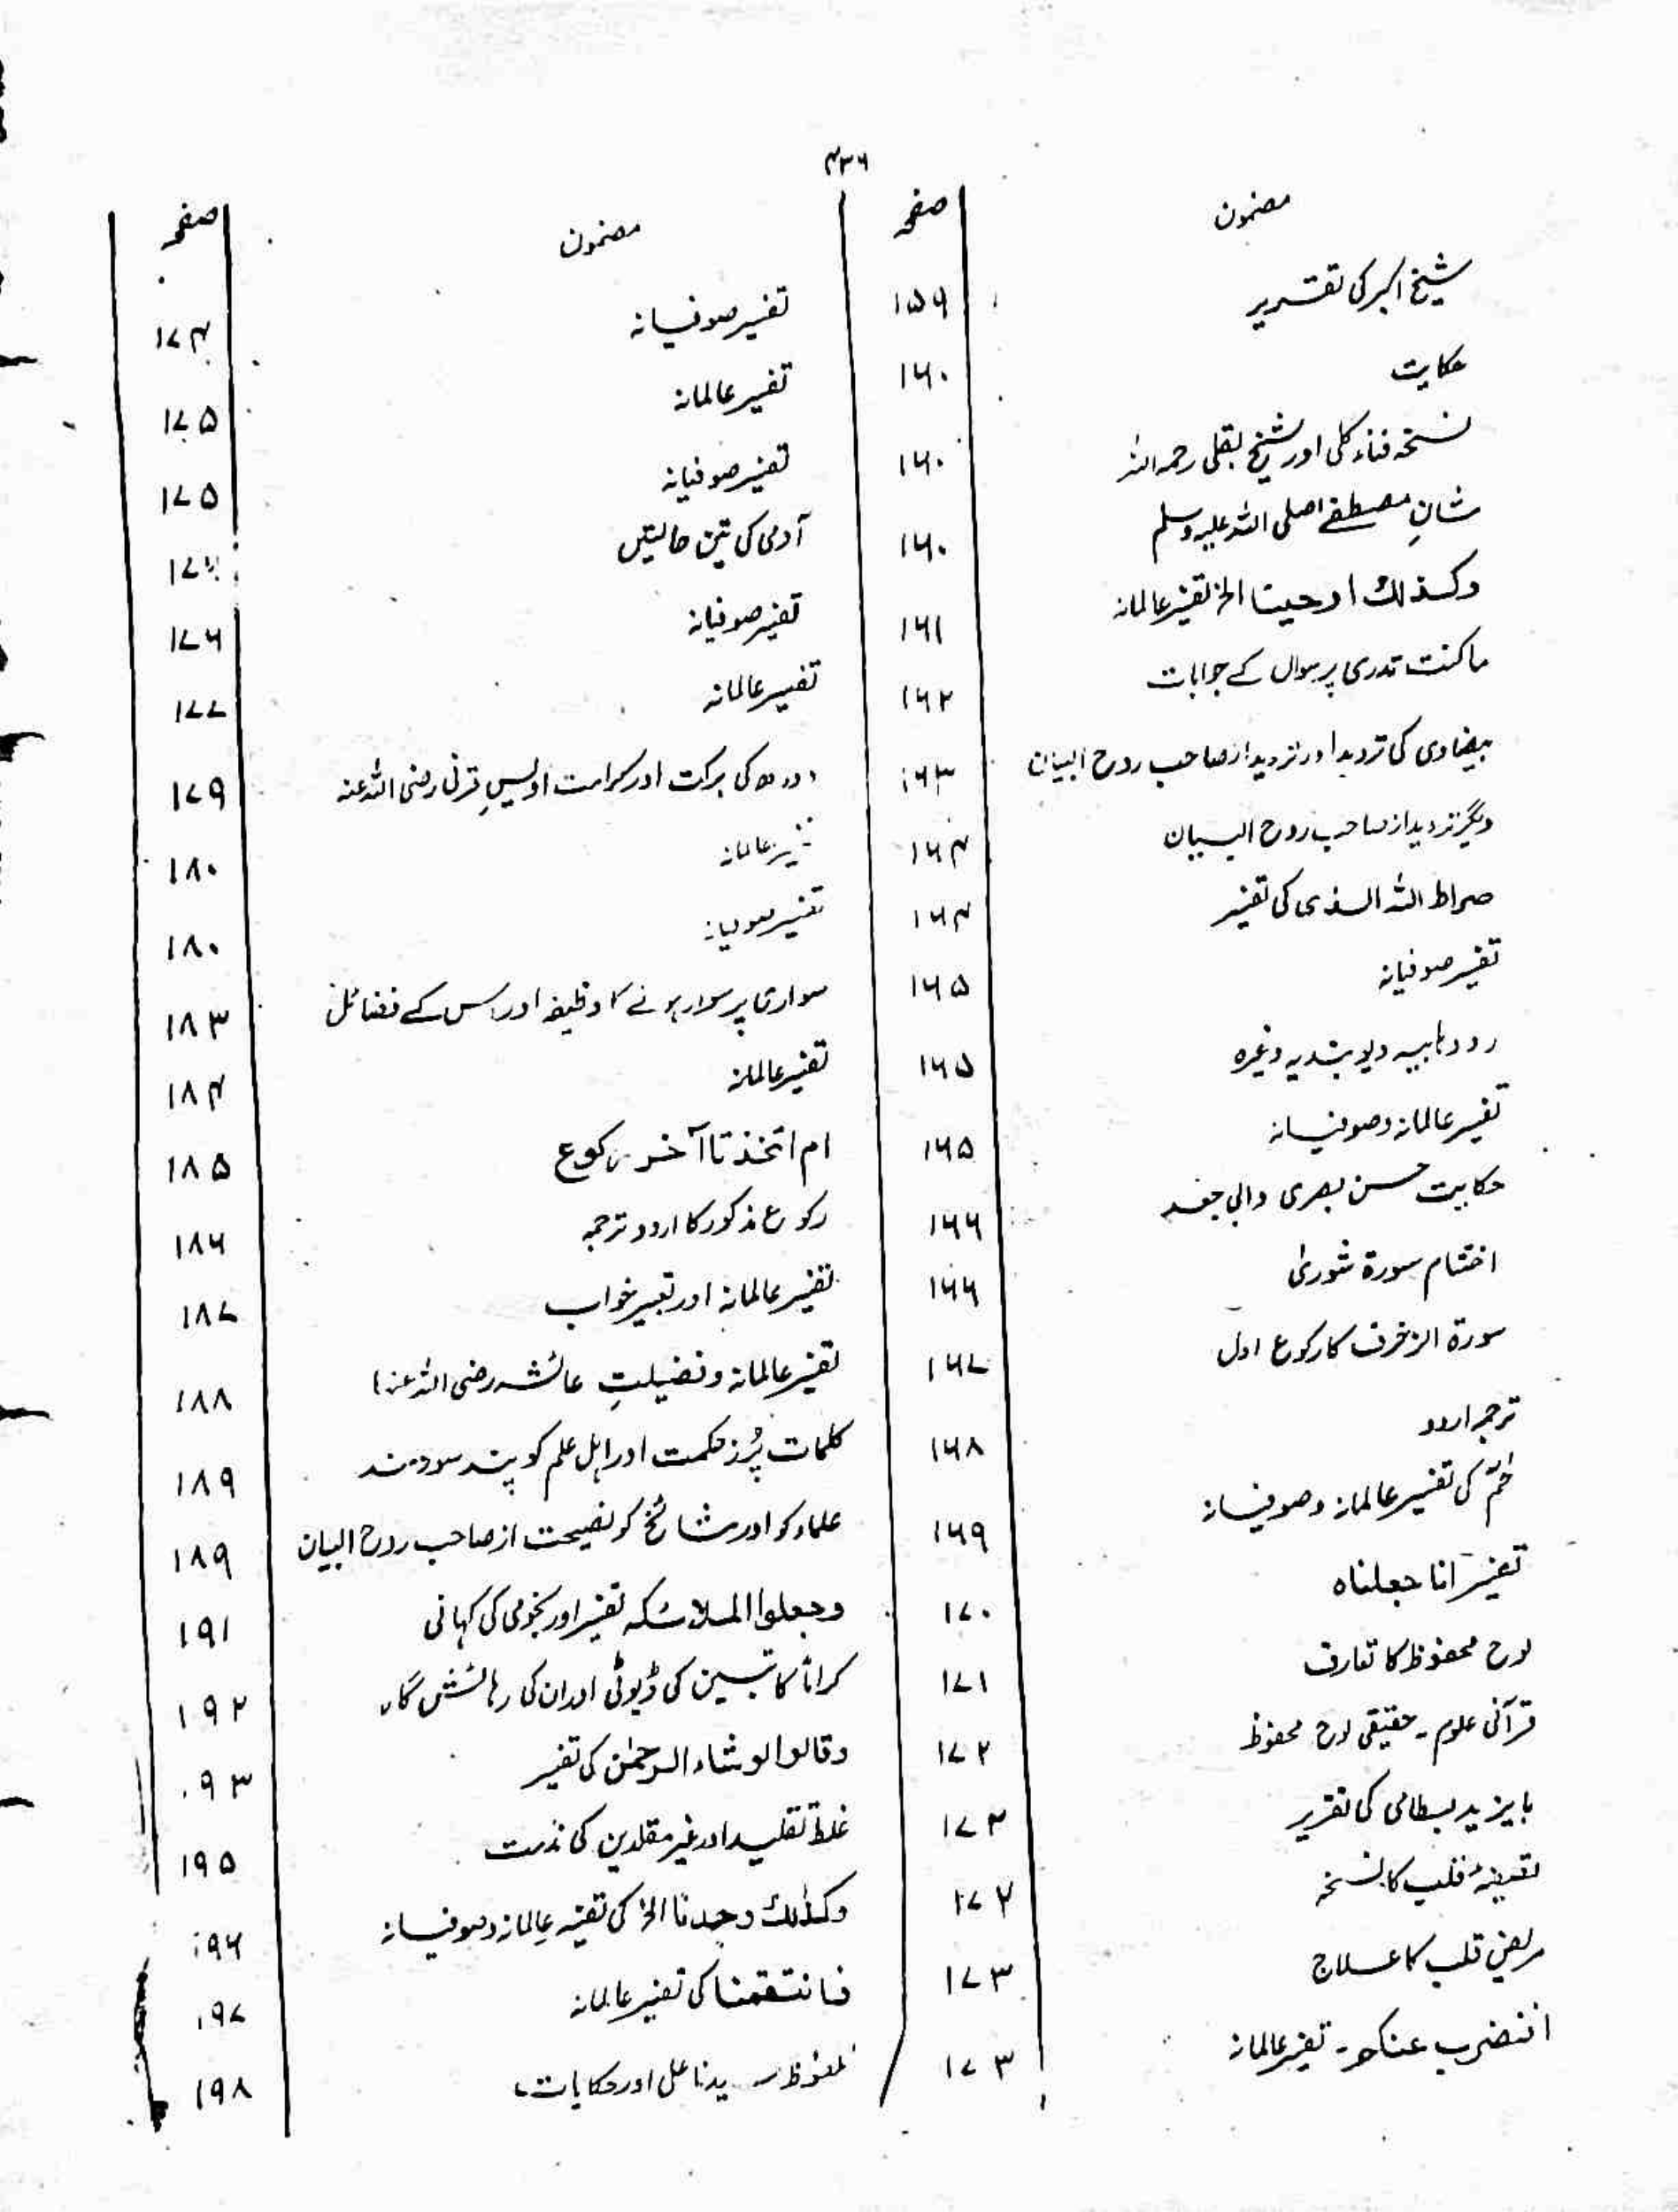 ۴۳۶
مضمون صفحہ
شیخ اکبر کی تقسدیر ۱۵۹
حکایت ۱۶۰
نسخہ فناء کلی اور شیخ بقلی رحمہ اللہ ۱۶۰
شانِ مصطفےٰ صلی اللہ علیہ وسلم ۱۶۰
وکذالک اوحینا الخ تفسیر عالمانہ ۱۶۱
ماکنت تدری پر سوال کے جوابات ۱۶۲
بیضاوی کی تردید اور تردید از صاحب روح البیان ۱۶۳
دیگر تردید از صاحب روح البیان ۱۶۴
صراط اللہ الذی کی تفسیر ۱۶۴
تفسیر صوفیانہ ۱۶۵
رد وہابیہ دیوبندیہ وغیرہ ۱۶۵
تفسیر عالمانہ وصوفیانہ ۱۶۵
حکایت حسن بصری وابی جعفر ۱۶۶
اختتام سورۃ شوریٰ ۱۶۶
سورۃ الزخرف کا رکوع اول ۱۶۷
ترجمہ اردو ۱۶۸
حٰمٓ کی تفسیر عالمانہ وصوفیانہ ۱۶۹
تفسیر انا جعلناہ ۱۷۰
لوح محفوظ کا تعارف ۱۷۱
قرآنی علوم - حقیقی لوح محفوظ ۱۷۲
بایزید بسطامی کی تقریر ۱۷۲
تصفیۂ قلب کا نسخہ ۱۷۲
مریض قلب کا علاج ۱۷۳
افنضرب عنکم - تفسیر عالمانہ ۱۷۳
مضمون صفحہ
تفسیر صوفیانہ ۱۷۴
تفسیر عالمانہ ۱۷۵
تفسیر صوفیانہ ۱۷۵
آدمی کی تین حالتیں
تفسیر صوفیانہ ۱۷۶
تفسیر عالمانہ ۱۷۷
دودھ کی برکت اور کرامت اویسِ قرنی رضی اللہ عنہ ۱۷۹
تفسیر عالمانہ ۱۸۰
تفسیر صوفیانہ ۱۸۰
سواری پر سوار ہونے کا وظیفہ اور اس کے فضائل ۱۸۳
تفسیر عالمانہ ۱۸۴
ام اتخذ تا آخر رکوع ۱۸۵
رکوع مذکور کا اردو ترجمہ ۱۸۶
تفسیر عالمانہ اور تعبیر خواب ۱۸۷
تفسیر عالمانہ وفضیلتِ عائشہ رضی اللہ عنہا ۱۸۸
کلمات پُرز حکمت اور اہل علم کو پند سودمند ۱۸۹
علماء کو اور مشائخ کو نصیحت از صاحب روح البیان ۱۸۹
وجعلوا الملائکہ تفسیر اور نجومی کی کہانی ۱۹۱
کراماً کاتبین کی ڈیوٹی اور ان کی رہائش گاہ ۱۹۲
وقالوا لو شاء الرحمٰن کی تفسیر ۱۹۳
غلط تقلید اور غیر مقلدین کی مذمت ۱۹۵
وکذالک وجدنا الخ کی تفسیر عالمانہ وصوفیانہ ۱۹۶
فانتقمنا کی تفسیر عالمانہ ۱۹۷
ملفوظ سیدنا علی اور حکایات ۱۹۸